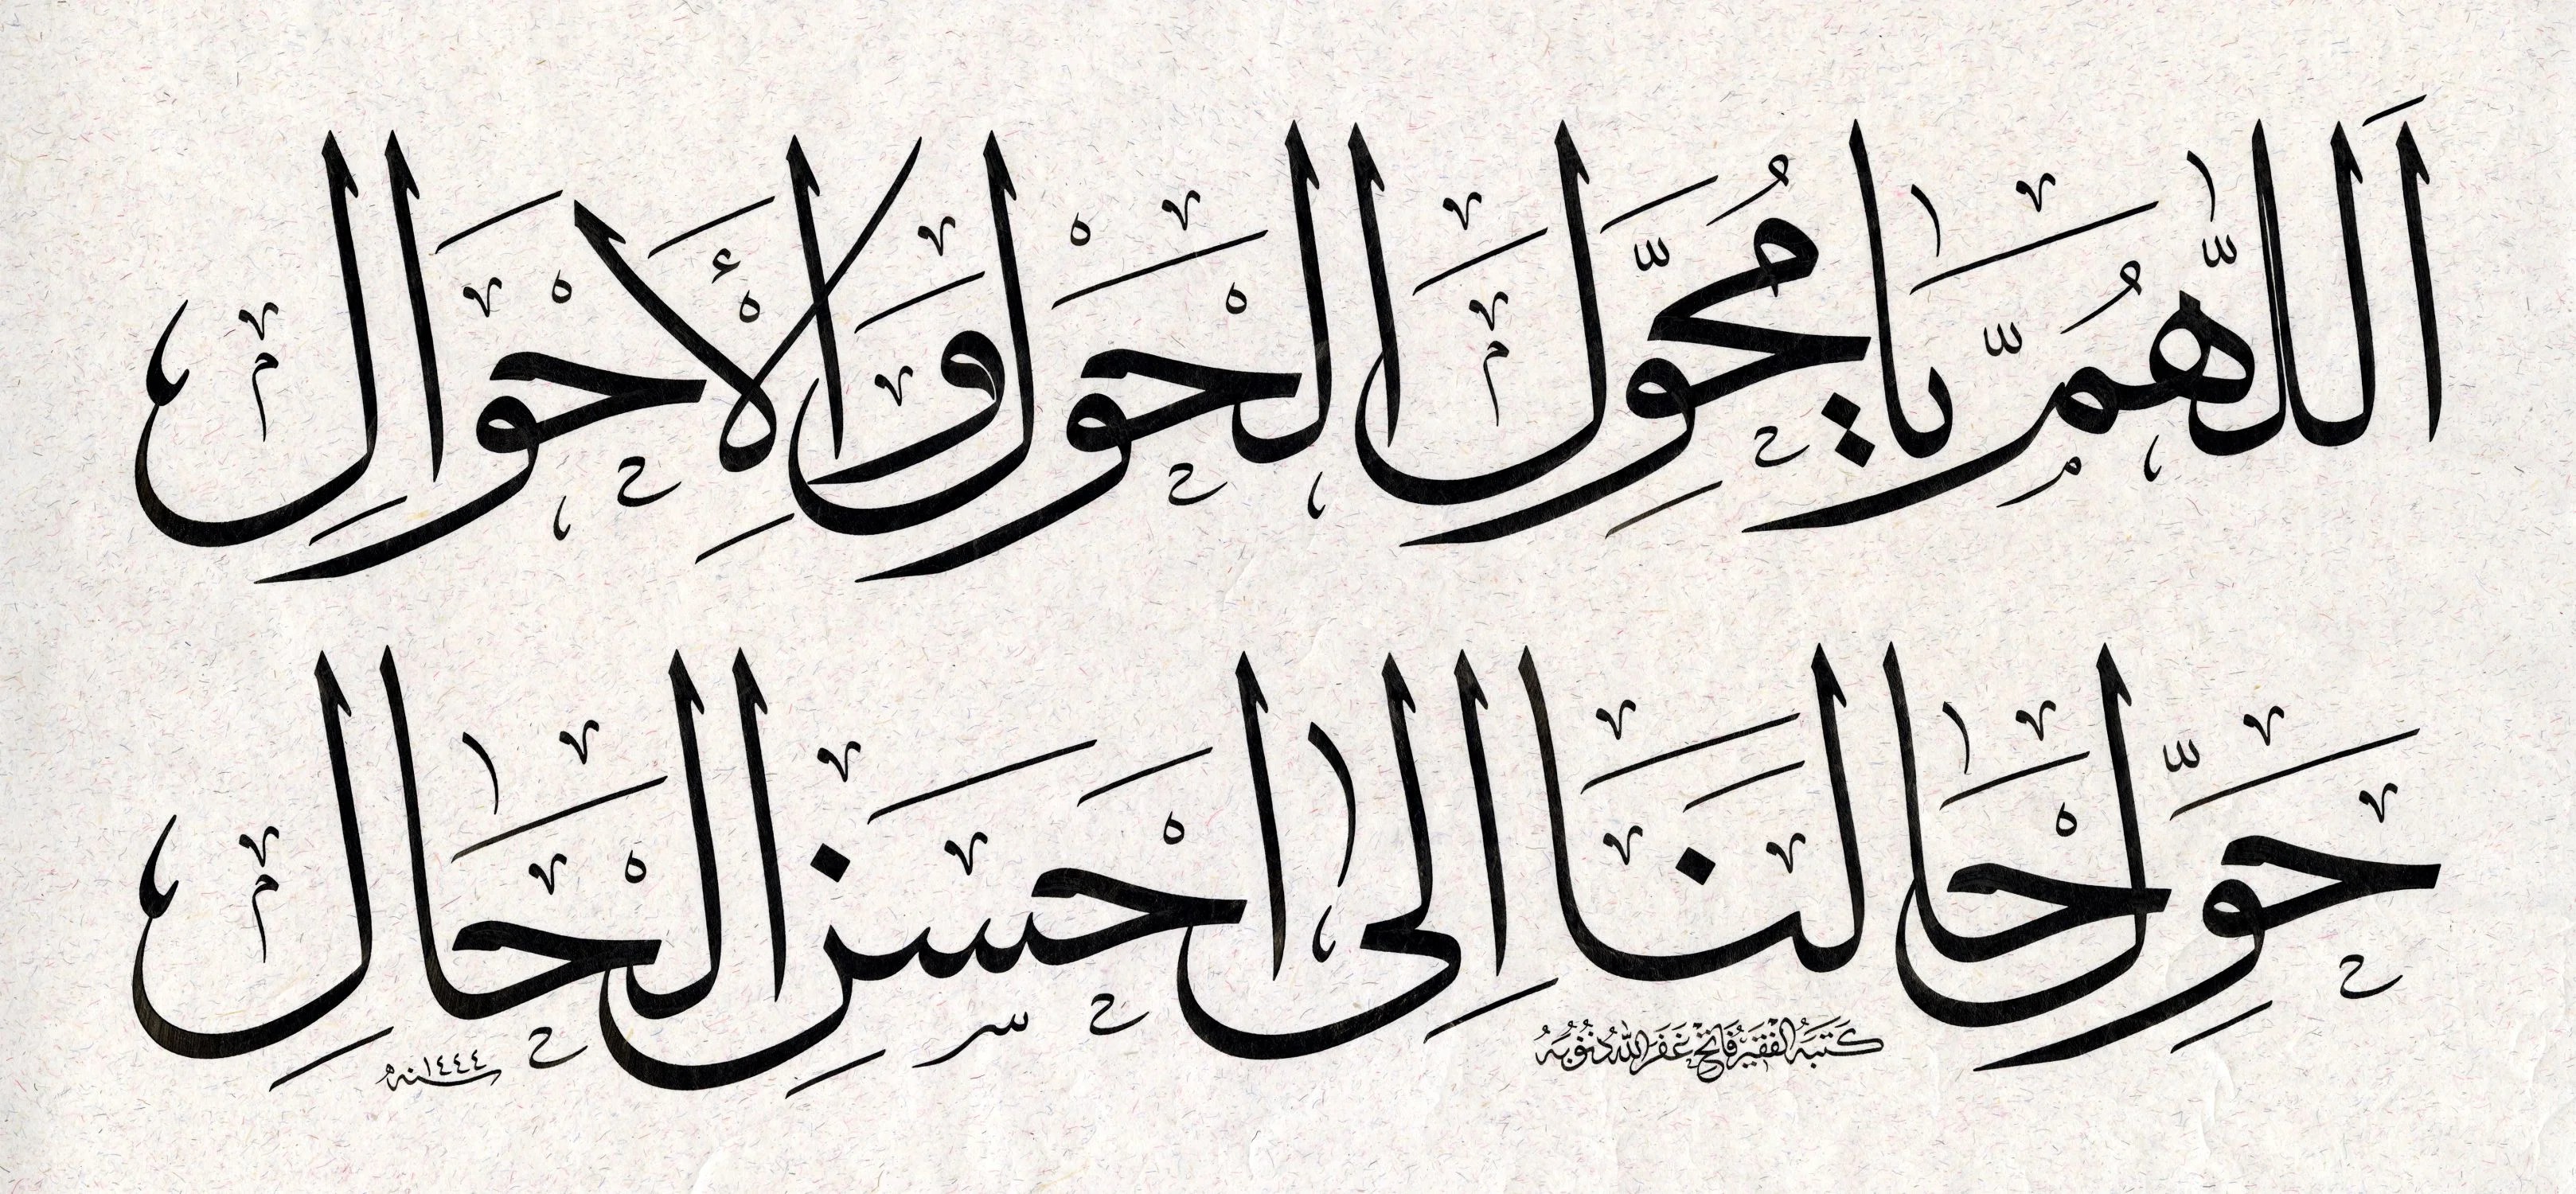 اَللّٰهُمَّ يَا مُحَوِّلَ الْحَوْلِ وَالْأَحْوَالِ
حَوِّلْ حَالَنَا اِلٰى اَحْسَنِ الْحَالِ
كَتَبَهُ الْفَقِيرُ فَاتِح غَفَرَ اللّٰهُ ذُنُوبَهُ
سنه ١٤٤٤